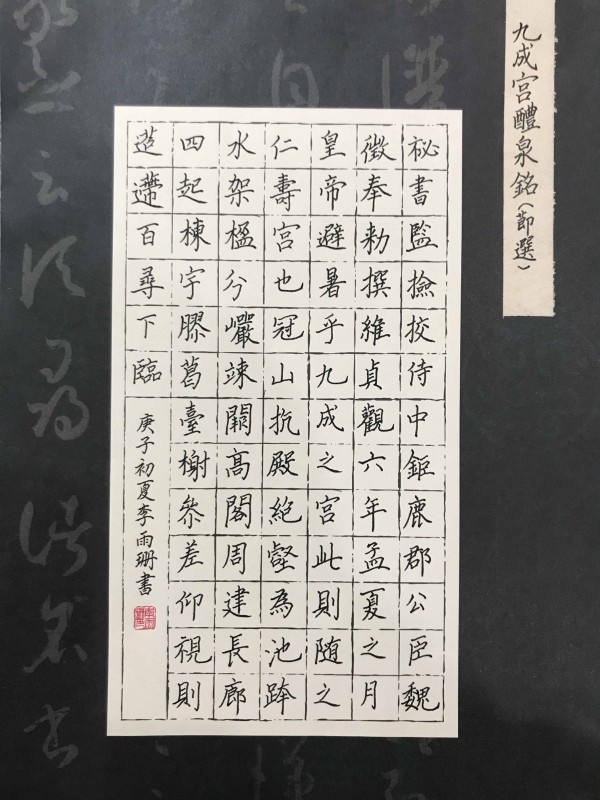 九成宮醴泉銘(節選)
祕書監撿挍侍中鉅鹿郡公臣魏
徵奉勅撰維貞觀六年孟夏之月
皇帝避暑乎九成之宮此則随之
仁壽宮也冠山抗殿絕壑為池跨
水架楹分巖竦闕高閣周建長廊
四起棟宇膠葛臺榭叅差仰視則
迢遰百尋下臨
庚子初夏李雨珊書